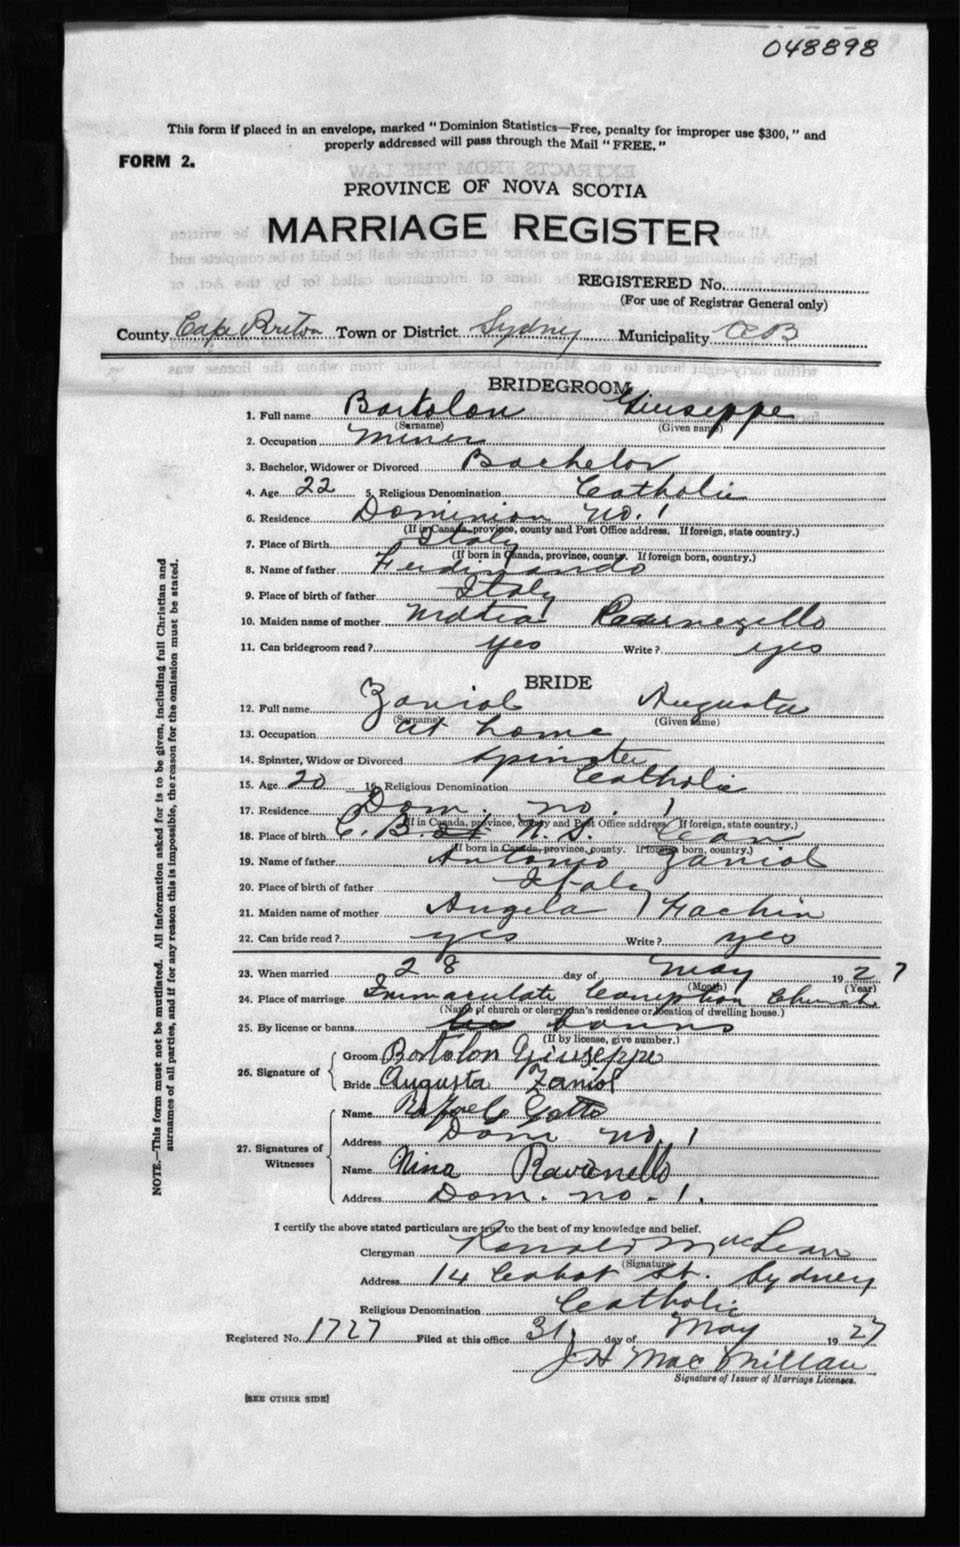 048898
This form if placed in an envelope, marked "Dominion Statistics—Free, penalty for improper use $300," and
properly addressed will pass through the Mail "FREE."
FORM 2.
PROVINCE OF NOVA SCOTIA
MARRIAGE REGISTER
REGISTERED No.
(For use of Registrar General only)
County Cape Breton Town or District Sydney Municipality CB
BRIDEGROOM
1. Full name Bortolon Giuseppe
(Surname) (Given name)
2. Occupation Miner
3. Bachelor, Widower or Divorced Bachelor
4. Age 22 5. Religious Denomination Catholic
6. Residence Dominion No. 1
(If in Canada, province, county and Post Office address. If foreign, state country.)
7. Place of Birth Italy
(If born in Canada, province, county. If foreign born, country.)
8. Name of father Ferdinando
9. Place of birth of father Italy
10. Maiden name of mother
11. Can bridegroom read? yes Write? yes
BRIDE
12. Full name Zaniol Augusta
(Surname) (Given name)
13. Occupation at home
14. Spinster, Widow or Divorced spinster
15. Age 20 16. Religious Denomination Catholic
17. Residence Dom. no. 1
(If in Canada, province, county and Post Office address. If foreign, state country.)
18. Place of birth C. B. N. S. Can
(If born in Canada, province, county. If foreign born, country.)
19. Name of father Antonio Zaniol
20. Place of birth of father Italy
21. Maiden name of mother Angela Fachin
22. Can bride read? yes Write? yes
23. When married 28 day of May 1927
(Month) (Year)
24. Place of marriage Immaculate Conception Church
(Name of church or clergyman's residence or location of dwelling house.)
25. By license or banns banns
(If by license, give number.)
26. Signature of
Groom Bortolon Giuseppe
Bride Augusta Zaniol
27. Signatures of Witnesses
Name Gatto
Address Dom no. 1
Name Nina Ravanello
Address Dom. no. 1.
I certify the above stated particulars are true to the best of my knowledge and belief.
Clergyman Ronald MacLean
(Signature)
Address 14 Cabot St. Sydney
Religious Denomination Catholic
Registered No. 1727 Filed at this office 31 day of May 1927
J H MacMillan
Signature of Issuer of Marriage Licenses.
[SEE OTHER SIDE]
NOTE.—This form must not be mutilated. All information asked for is to be given, including full Christian and
surnames of all parties, and if for any reason this is impossible, the reason for the omission must be stated.